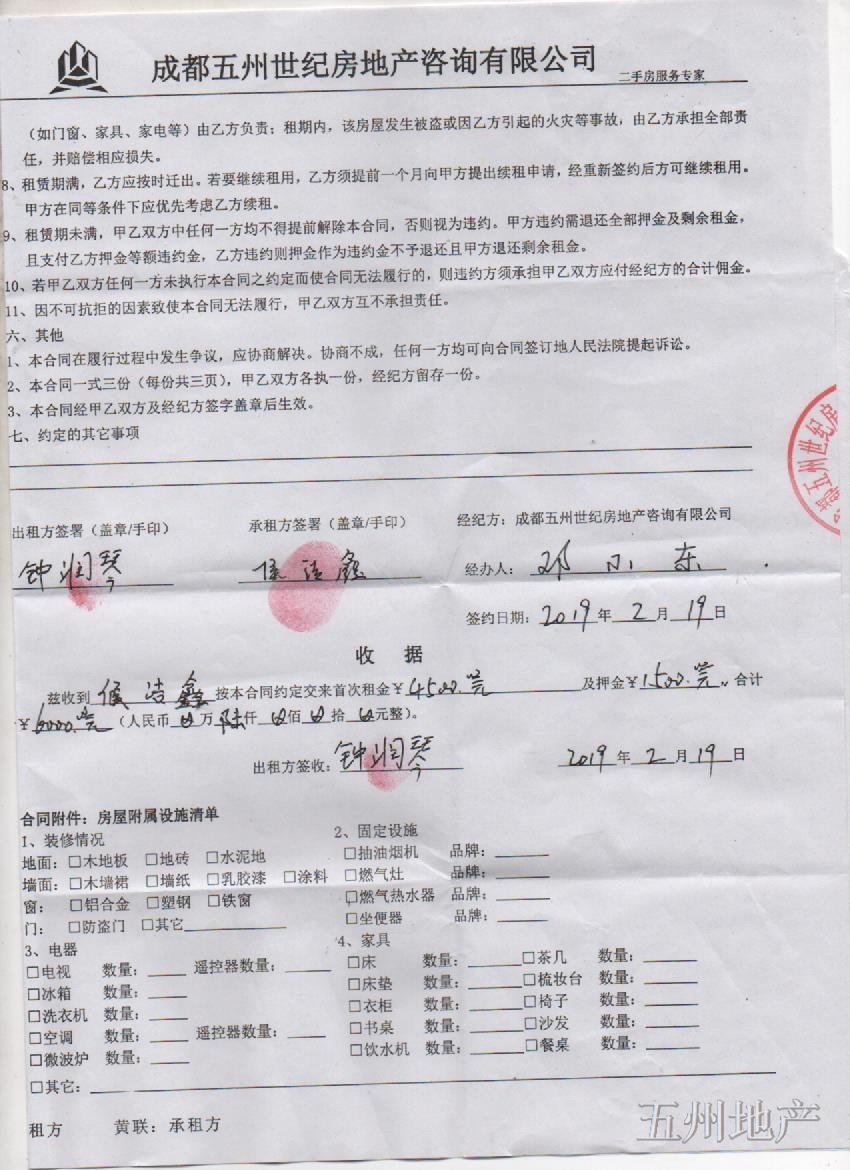 成都五州世纪房地产咨询有限公司 二手房服务专家
（如门窗、家具、家电等）由乙方负责；租期内，该房屋发生被盗或因乙方引起的火灾等事故，由乙方承担全部责
任，并赔偿相应损失。
8、租赁期满，乙方应按时迁出。若要继续租用，乙方须提前一个月向甲方提出续租申请，经重新签约后方可继续租用。
甲方在同等条件下应优先考虑乙方续租。
9、租赁期未满，甲乙双方中任何一方均不得提前解除本合同，否则视为违约。甲方违约需退还全部押金及剩余租金，
且支付乙方押金等额违约金，乙方违约则押金作为违约金不予退还且甲方退还剩余租金。
10、若甲乙双方任何一方未执行本合同之约定而使合同无法履行的，则违约方须承担甲乙双方应付经纪方的合计佣金。
11、因不可抗拒的因素致使本合同无法履行，甲乙双方互不承担责任。
六、其他
1、本合同在履行过程中发生争议，应协商解决。协商不成，任何一方均可向合同签订地人民法院提起诉讼。
2、本合同一式三份（每份共三页），甲乙双方各执一份，经纪方留存一份。
3、本合同经甲乙双方及经纪方签字盖章后生效。
七、约定的其它事项
都五州世纪房
出租方签署（盖章/手印） 承租方签署（盖章/手印） 经纪方：成都五州世纪房地产咨询有限公司
钟润琴 侯洁鑫 经办人：邓小东
签约日期：2019年2月19日
收 据
兹收到侯洁鑫按本合同约定交来首次租金￥4500.及押金￥1500.合计
￥6000.（人民币 万陆仟 佰 拾 元整）。
出租方签收：钟润琴 2019年2月19日
合同附件：房屋附属设施清单
1、装修情况
地面：□木地板 □地砖 □水泥地
墙面：□木墙裙 □墙纸 □乳胶漆 □涂料
窗：□铝合金 □塑钢 □铁窗
门：□防盗门 □其它
2、固定设施
□抽油烟机 品牌：
□燃气灶 品牌：
□燃气热水器 品牌：
□坐便器 品牌：
3、电器
□电视 数量： 遥控器数量：
□冰箱 数量：
□洗衣机 数量：
□空调 数量： 遥控器数量：
□微波炉 数量：
4、家具
□床 数量： □茶几 数量：
□床垫 数量： □梳妆台 数量：
□衣柜 数量： □椅子 数量：
□书桌 数量： □沙发 数量：
□饮水机 数量： □餐桌 数量：
□其它：
租方 黄联：承租方
五州地产